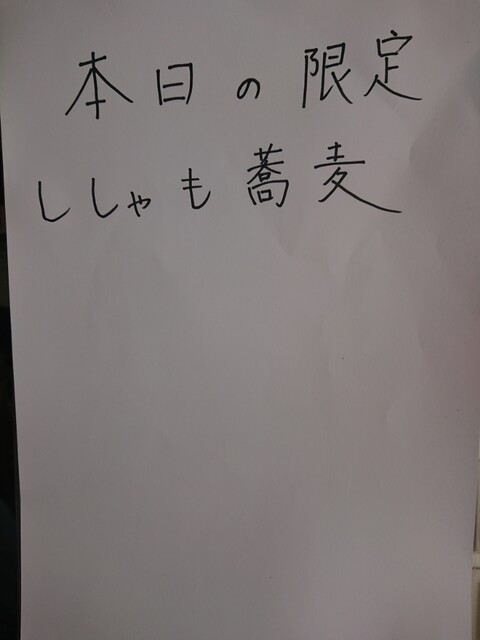 本日の限定
ししゃも蕎麦